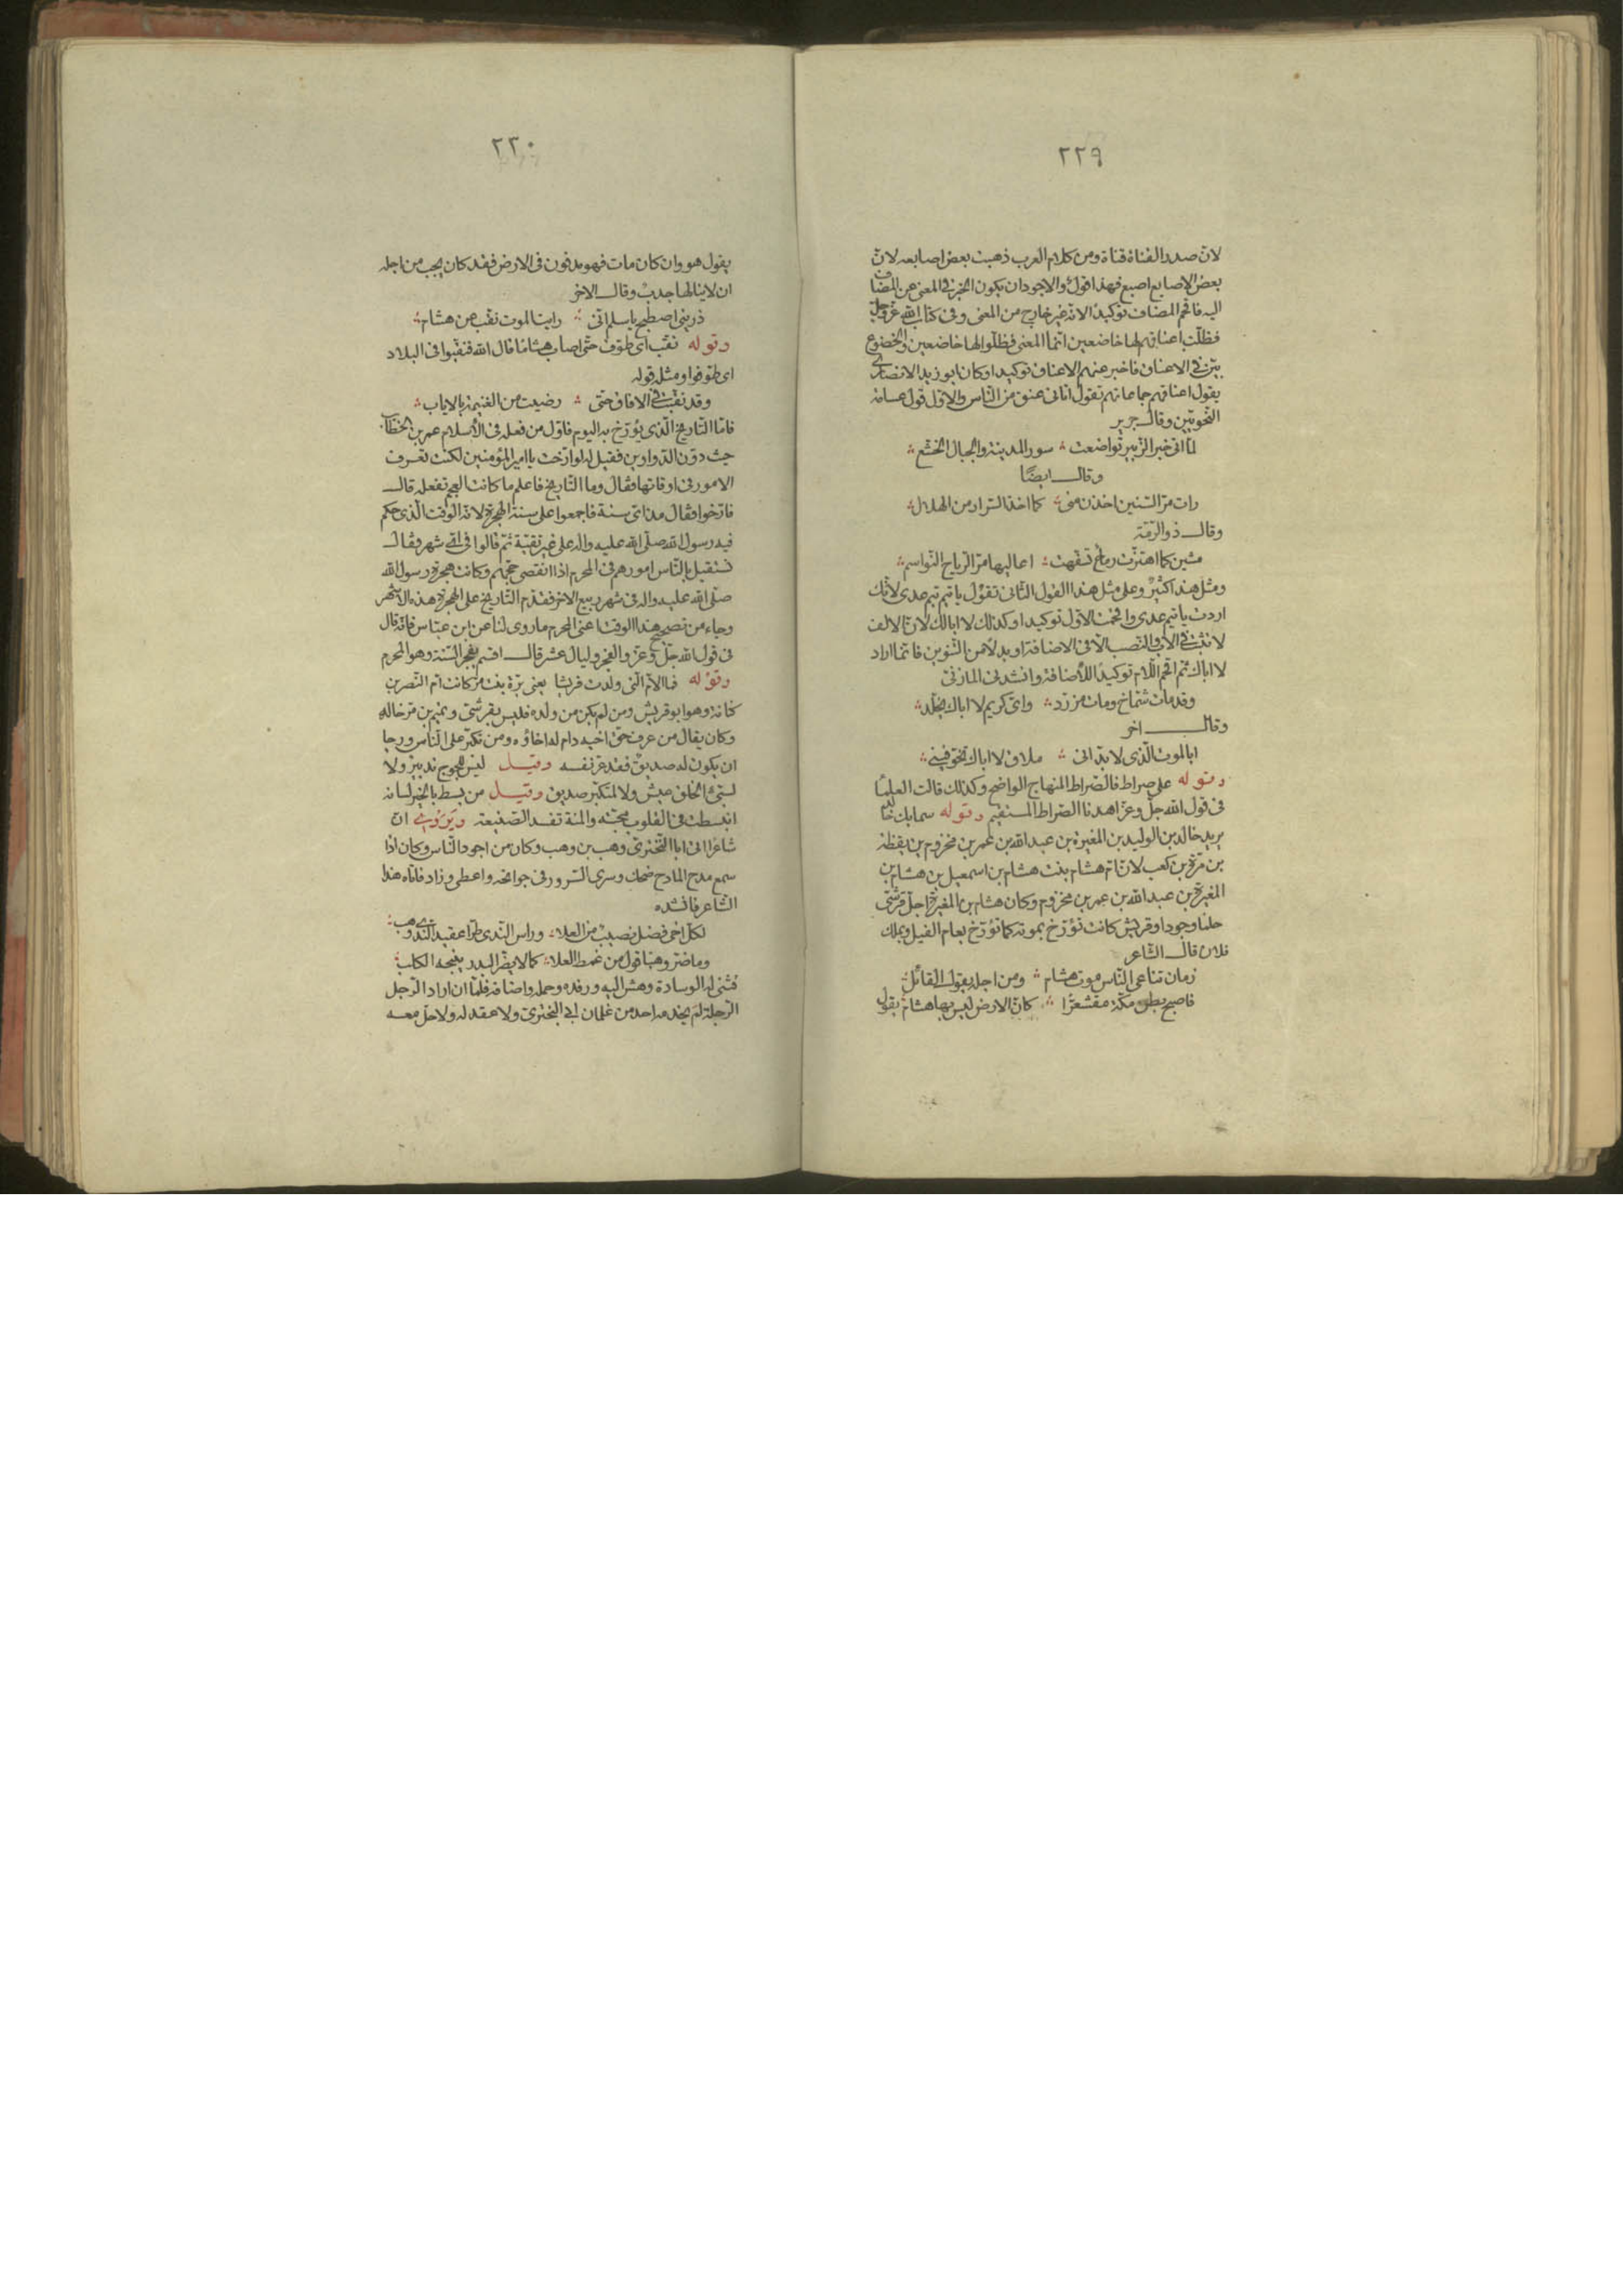 ٢٢٩
لان صدر القناة قناة ومن كلام العرب ذهبت بعض اصابعه لان
بعض الاصابع اصبع فهذا قول والاجود ان يكون الخبر فى المعنى عن المضاف
اليه فاقحم المضاف توكيدا لانه غير خارج من المعنى وفى كتاب الله عز وجل
فظلت اعناقهم لها خاضعين انما المعنى فظلوا لها خاضعين والخضوع
بين فى الاعناق فاخبر عنهم الاعناق توكيدا وكان ابو زيد الانصارى
يقول اعناقهم جماعاتهم تقول اتانى عنق من الناس والاول قول عامة
النحويين وقال جرير
لما اتى خبر الزبير تواضعت سور المدينة والجبال الخشع
وقال ايضًا
رات مر السنين اخذن منى كما اخذ السرار من الهلال
وقال ذو الرمة
مشين كما اهتزت رماح تسفهت اعاليها مر الرياح النواسم
ومثل هذا كثير وعلى مثل هذا القول الثانى تقول يا تيم تيم عدى لانك
اردت يا تيم عدى واقحمت الاول توكيدا وكذلك لا ابالك لان الالف
لا تثبت فى الاب فى النصب الا فى الاضافة او بدلا من التنوين فانما اراد
لا اباك ثم اقحم اللام توكيدًا للأضافة وانشدنى المازنى
وقد مات شماخ ومات مزرد واى كريم لا اباك يخلد
وقال اخر
ابالموت الذى لا بد انى ملاق لا اباك تخوفينى
وقوله على صراط فالصراط المنهاج الواضح وكذلك قالت العلماء
فى قول الله جل وعز اهدنا الصراط المستقيم وقوله سما بك خالد
يريد خالد بن الوليد بن المغيرة بن عبد الله بن عمر بن مخزوم بن يقظة
بن مرة بن كعب لان ام هشام بنت هشام بن اسمعيل بن هشام بن
المغيرة بن عبد الله بن عمر بن مخزوم وكان هشام بن المغيرة اجل قرشى
حلما وجودا وقريش كانت تؤرخ بموته كما تؤرخ بعام الفيل وبملك
فلان قال الشاعر
زمان تناعى الناس موت هشام ومن اجله يقول القائل
فاصبح بطن مكة مقشعرًا كان الارض ليس بها هشام يقول
٢٣٠
يقول هو وان كان مات فهو مدفون فى الارض فقد كان يجب من اجله
ان لا ينالها جدب وقال الاخر
ذرينى اصطبح يا سلم انى رايت الموت نقب عن هشام
وقوله نقب اى طوف حتى اصاب هشاما قال الله فنقبوا فى البلاد
اى طوفوا ومثله قوله
وقد نقبت فى الافاق حتى رضيت من الغنيمة بالاياب
فاما التاريخ الذى يؤرخ به اليوم فاول من فعله فى الأسلام عمر بن الخطاب
حيث دون الدواوين فقيل له لو ارخت يا امير المؤمنين لكنت تعرف
الامور فى اوقاتها فقال وما التاريخ فاعلم ما كانت العجم تفعله قال
فارخوا فقال مذ اى سنة فاجمعوا على سنة الهجرة لانه الوقت الذى حكم
فيه رسول الله صلى الله عليه واله على غير تقية ثم قالوا فى اى شهر وقال
نستقبل بالناس امورهم فى المحرم اذا انقضى حجهم وكانت هجرة رسول الله
صلى الله عليه واله فى شهر ربيع الاخر فقدم التاريخ على الهجرة هذه الاشهر
وجاء من تصحيح هذا الوقت اعنى المحرم ما روى لنا عن ابن عباس فانه قال
فى قول الله جل وعز والفجر وليال عشر قال اقسم بفجر السنة وهو المحرم
وقوله فما الام التى ولدت قريشا يعنى برة بنت مر كانت ام النضر بن
كنانة وهو ابو قريش ومن لم يكن من ولده فليس بقرشى وتميم بن مر خاله
وكان يقال من عرف حق اخيه دام له اخاؤه ومن تكبر على الناس ورجا
ان يكون له صديق فقد غر نفسه وقيل ليس للجوج تدبير ولا
لسيئ الخلق عيش ولا لمتكبر صديق وقيل من بسط بالخير لسانه
انبسطت فى القلوب محبته والمنة تفسد الصنيعة ويروى ان
شاعرا اتى ابا البخترى وهب بن وهب وكان من اجود الناس وكان اذا
سمع مدح المادح ضحك وسرى السرور فى جوانحه واعطى وزاد فاتاه هذا
الشاعر فانشده
لكل اخى فضل نصيب من العلا وراس الندى طرا عقيد الندى وهب
وما ضر وهبا قول من غمط العلا كما لا يضر البدر ينبحه الكلب
فثنى له الوسادة وهش اليه ورفده وحمله واضافه فلما ان اراد الرجل
الرحلة لم يخدمه احد من غلمان ابى البخترى ولا عقد له ولا حل معه